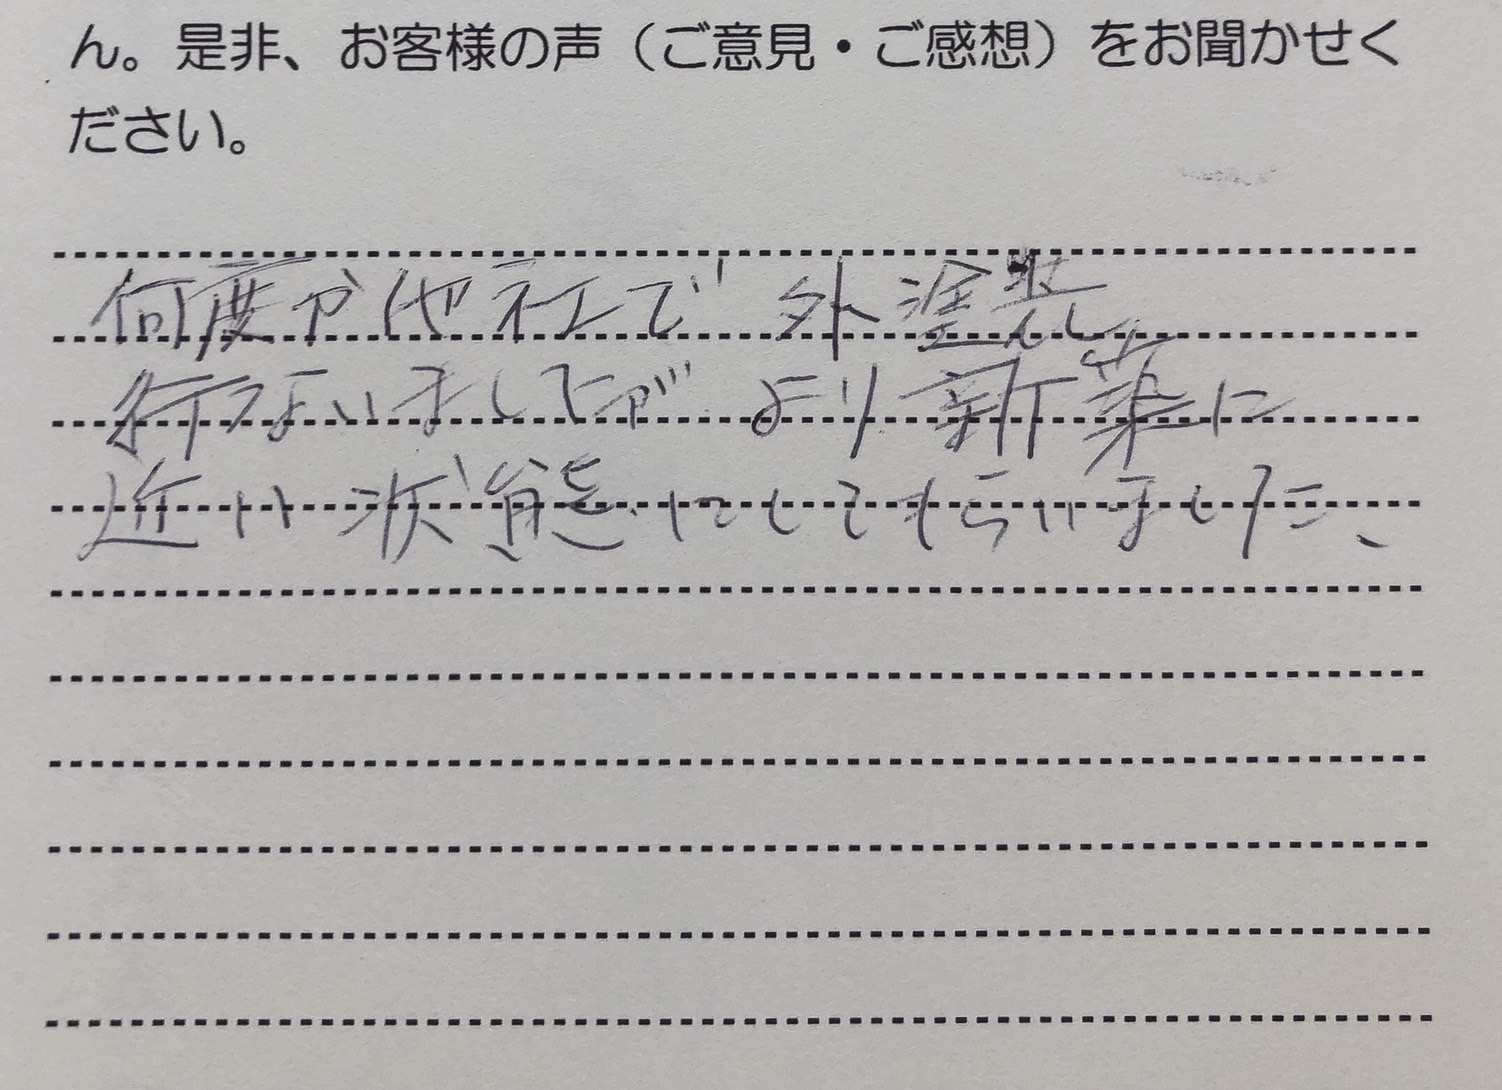 ん。是非、お客様の声（ご意見・ご感想）をお聞かせく
ださい。
何度か他社で 外塗装
行ないましたが より新築に
近い状態にしてもらいました、